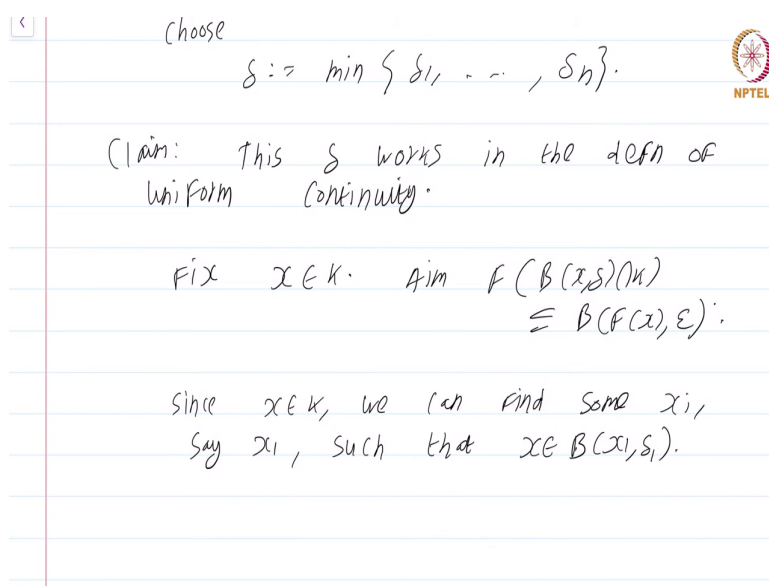 Choose
δ := min { δ1, . . . , δn }.
NPTEL
Claim: This δ works in the defn of
uniform continuity.
Fix x ∈ K. Aim F(B(x,δ)∩K)
⊆ B(F(x), ε).
Since x ∈ K, we can find some xi,
say x1, such that x ∈ B(x1, δ1).